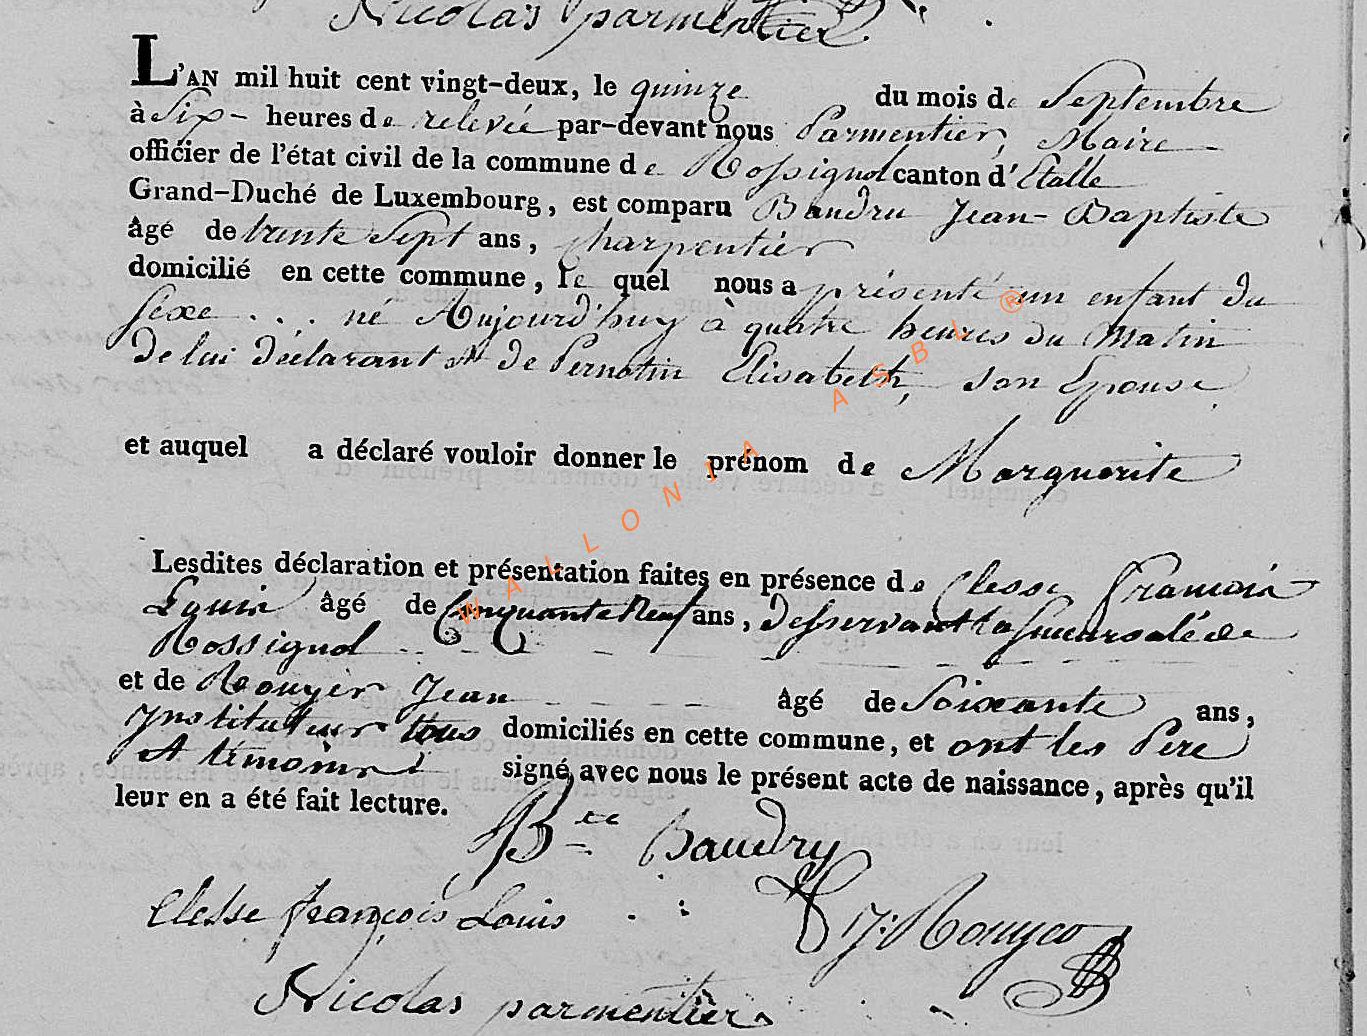 Nicolas parmentier.
L'AN mil huit cent vingt-deux, le quinze du mois de Septembre
à Six - heures de relevée par-devant nous Parmentier, Maire
officier de l'état civil de la commune de Rossignol canton d'Etalle
Grand-Duché de Luxembourg, est comparu Baudru Jean-Baptiste
âgé de trente Sept ans, charpentier
domicilié en cette commune, le quel nous a présenté un enfant du
sexe . . . . né Aujourd'huy à quatre heures du Matin
de lui déclarant et de Pernotin Elisabeth, son Epouse
et auquel a déclaré vouloir donner le prénom de Marguerite
Lesdites déclaration et présentation faites en présence de Clesse François
Louis âgé de Cinquante Neuf ans, Desservant la Succursale de
Rossignol
et de Rouyer Jean âgé de Soixante ans,
Instituteur tous domiciliés en cette commune, et ont les Pere
et témoins signé avec nous le présent acte de naissance, après qu'il
leur en a été fait lecture.
Bte Baudry
Clesse françois Louis J: Rouyer
Nicolas parmentier
WALLONIA ASBL ®